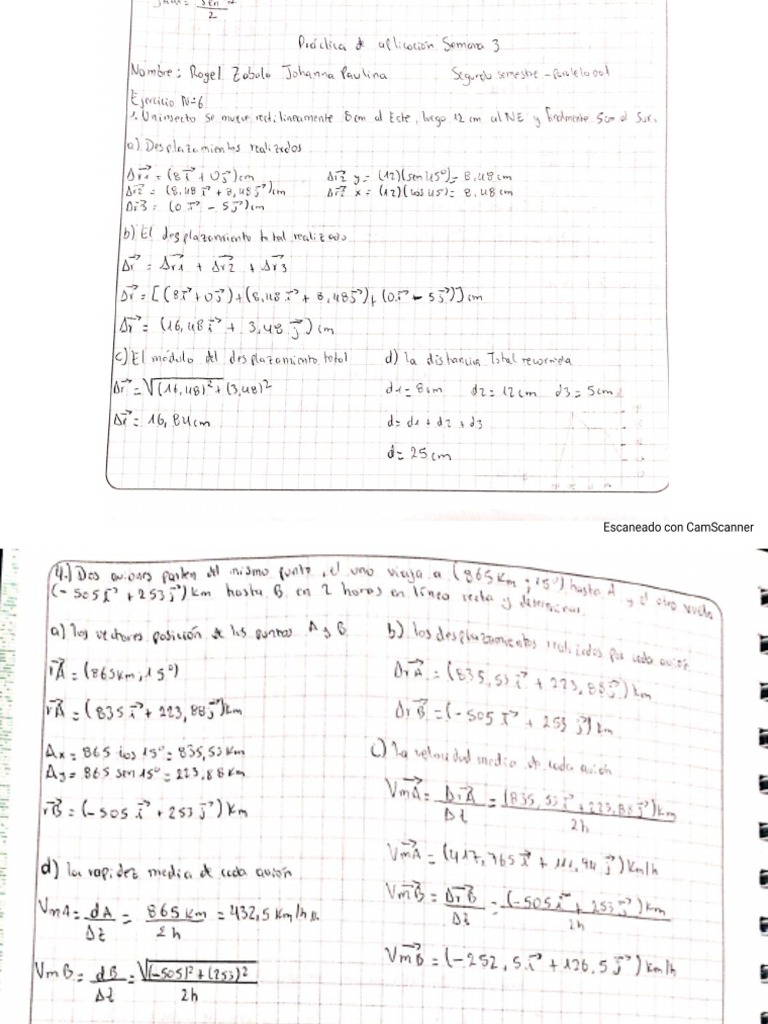 2
Práctica de aplicación Semana 3
Nombre: Rogel Zabala Johanna Paulina Segundo semestre - paralelo 001
Ejercicio N=6
1. Un insecto se mueve rectilíneamente 8cm al Este, luego 12 cm al NE y finalmente 5cm al Sur.
a) Desplazamientos realizados
Δr1 = (8i + 0j)cm Δr2 y = (12)(sen 45°) = 8,48 cm
Δr2 = (8,48 i + 8,48 j)cm Δr2 x = (12)(cos 45) = 8,48 cm
Δr3 = (0 i - 5j)cm
b) El desplazamiento total realizado
Δr = Δr1 + Δr2 + Δr3
Δr = [(8i + 0j) + (8,48 i + 8,48j) + (0i - 5j)] cm
Δr = (16,48 i + 3,48 j) cm
c) El módulo del desplazamiento total d) la distancia Total recorrida
Δr = √(16,48)² + (3,48)² d1 = 8cm d2 = 12cm d3 = 5cm
Δr = 16,84cm d = d1 + d2 + d3
d = 25 cm
Escaneado con CamScanner
4.) Dos aviones parten del mismo punto, el uno viaja a (865 km ; 15°) hasta A y el otro vuela
(-505 i + 253 j) km hasta B en 2 horas en línea recta y determinar.
a) los vectores posición de los puntos A y B
rA = (865 km, 15°)
rA = (835 i + 223,88 j) km
Ax = 865 cos 15° = 835,53 km
Ay = 865 sen 15° = 223,88 km
rB = (-505 i + 253 j) km
b) los desplazamientos realizados por cada avión
ΔrA = (835,53 i + 223,88 j) km
ΔrB = (-505 i + 253 j) km
c) la velocidad media de cada avión
VmA = ΔrA / Δt = (835,53 i + 223,88 j) km / 2h
VmA = (417,765 i + 111,94 j) km/h
VmB = ΔrB / Δt = (-505 i + 253 j) km / 2h
VmB = (-252,5 i + 126,5 j) km/h
d) la rapidez media de cada avión
VmA = dA / Δt = 865 km / 2h = 432,5 km/h
VmB = dB / Δt = √(-505)² + (253)² / 2h